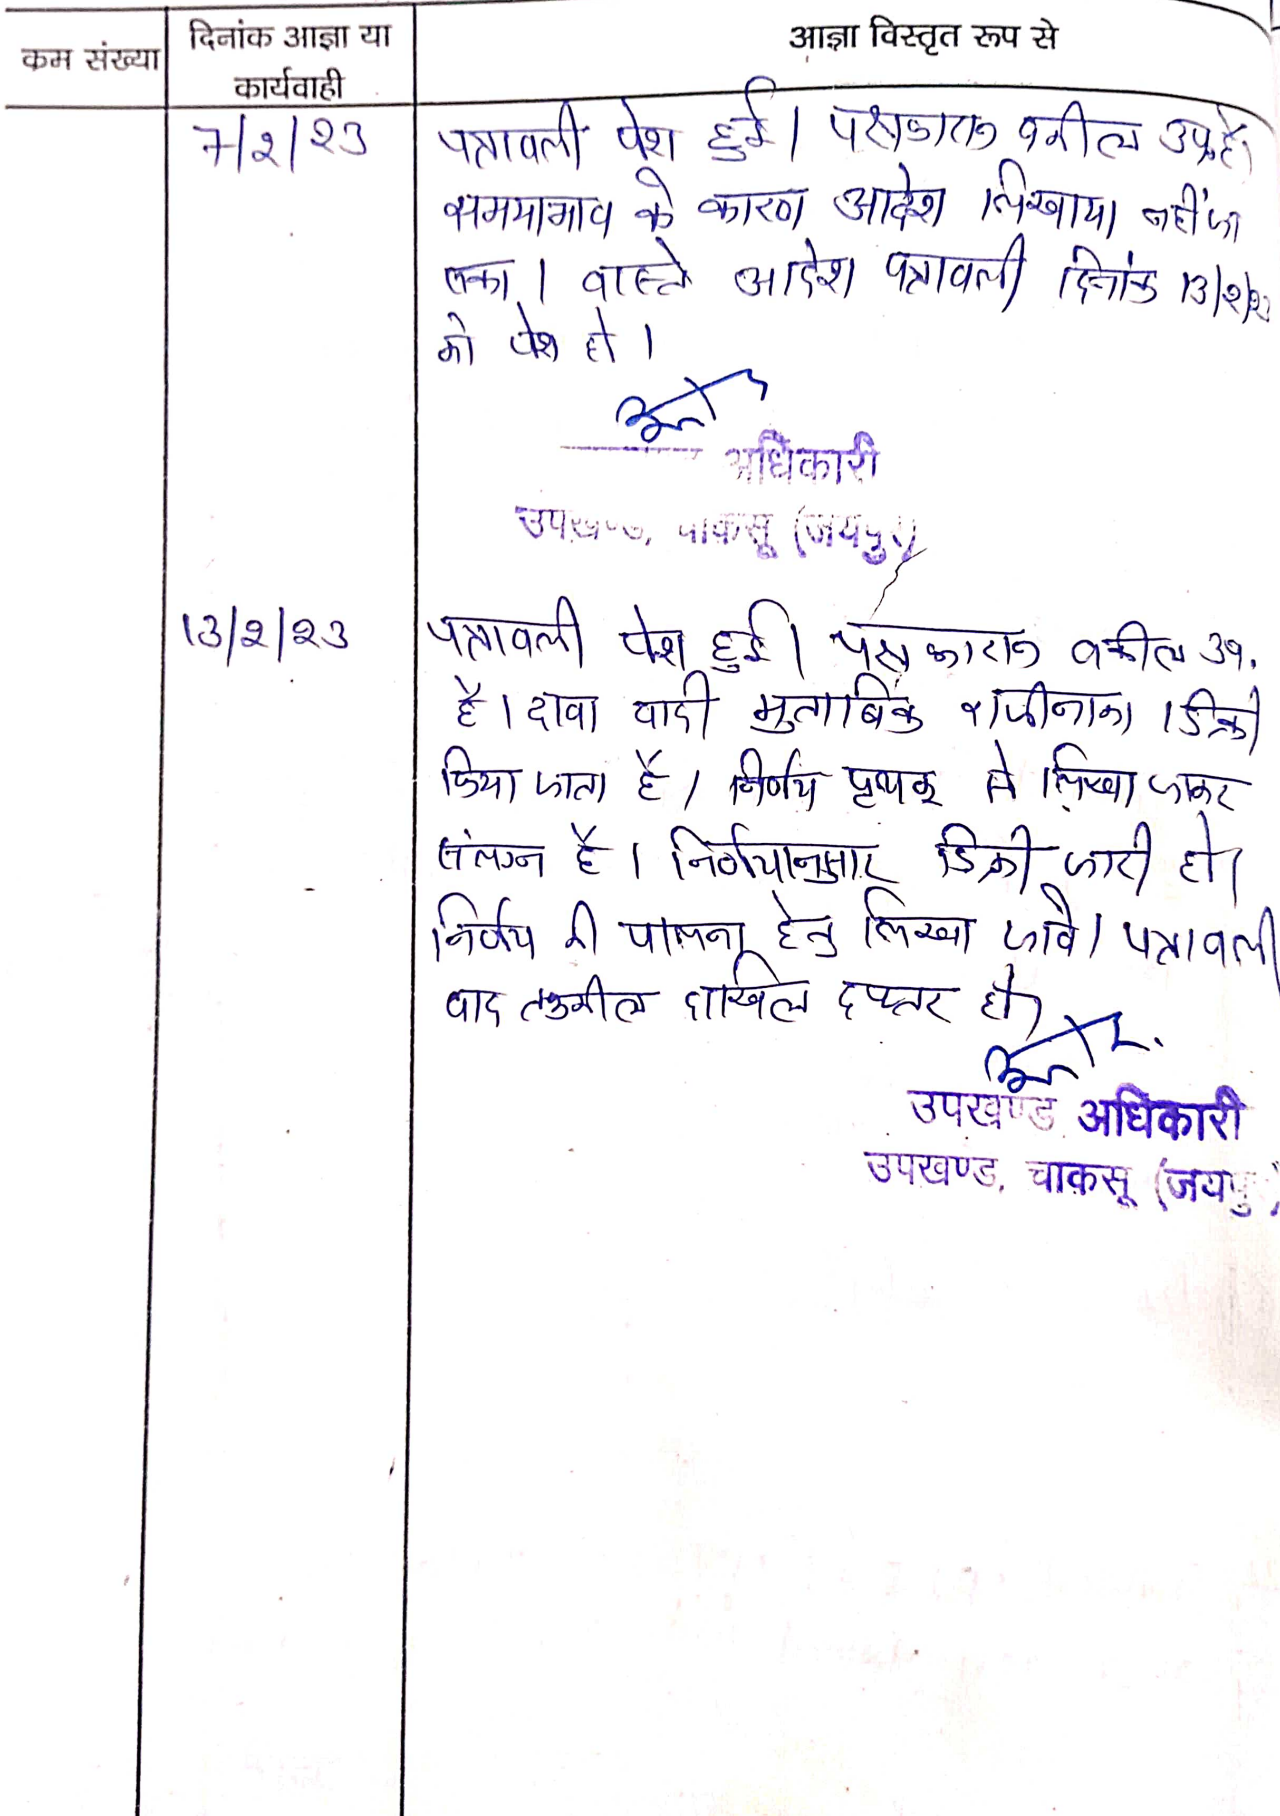 क्रम संख्या
दिनांक आज्ञा या
कार्यवाही
आज्ञा विस्तृत रूप से
7/2/23
पत्रावली पेश हुई। पक्षकारान वकील उप. है।
समयाभाव के कारण आदेश लिखाया नहीं जा
सका। वास्ते आदेश पत्रावली दिनांक 13/2/23
को पेश हो।
अधिकारी
उपखण्ड, चाकसू (जयपुर)
13/2/23
पत्रावली पेश हुई। पक्षकारान वकील उप.
है। दावा वादी मुताबिक राजीनामा डिक्री
किया जाता है। निर्णय पृथक से लिखा जाकर
संलग्न है। निर्णयानुसार डिक्री जारी हो।
निर्णय की पालना हेतु लिखा जावे। पत्रावली
बाद तकमील दाखिल दफ्तर हो।
उपखण्ड अधिकारी
उपखण्ड, चाकसू (जयपु